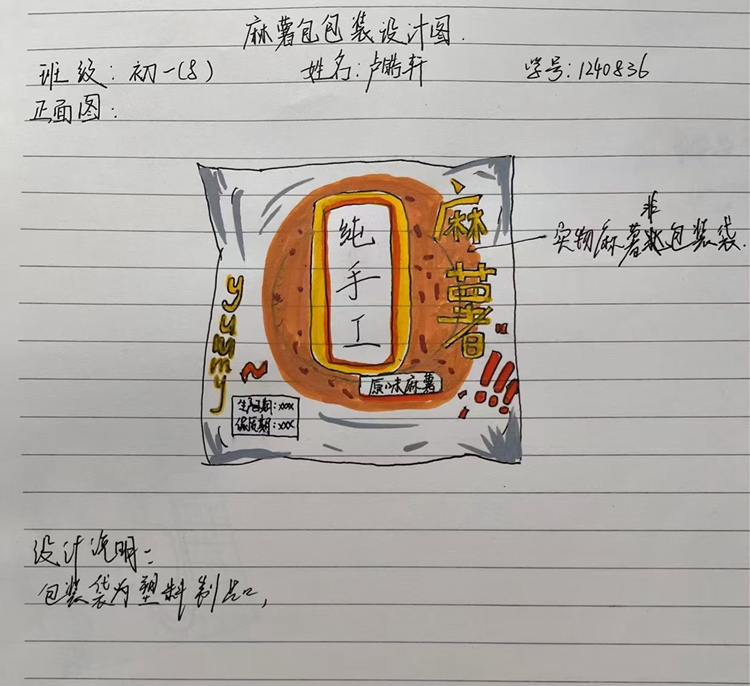 麻薯包包装设计图.
班级：初一(8) 姓名：卢皓轩 学号：1240836
正面图：
麻薯
纯手工
非
实物麻薯包装袋.
yummy
~
!!!
原味麻薯
生产日期：xxx
保质期：xxx
设计说明：
包装袋为塑料制品，